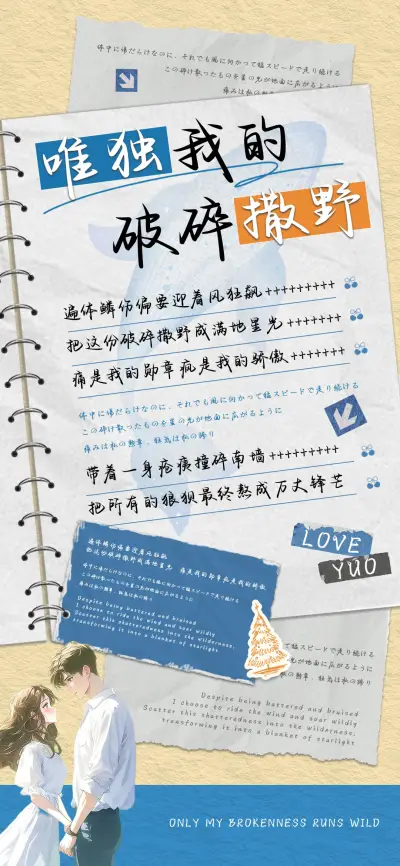 体中に傷だらけなのに、それでも風に向かって猛スピードで走り続ける
この砕け散ったものを星の光が地面に広がるように
痛みは私の
唯独我的
破碎撒野
遍体鳞伤偏要迎着风狂飙+++++++++
把这份破碎撒野成满地星光+++++++
痛是我的勋章疯是我的骄傲+++++++
体中に傷だらけなのに、それでも風に向かって猛スピードで走り続ける
この砕け散ったものを星の光が地面に広がるように
痛みは私の勲章、狂気は私の誇り
带着一身疮痍撞碎南墙+++++++++
把所有的狼狈最终熬成万丈锋芒
LOVE
YUO
遍体鳞伤偏要迎着风狂飙
把这份破碎撒野成满地星光 痛是我的勋章疯是我的骄傲
体中に傷だらけなのに、それでも風に向かって猛スピードで走り続ける
この砕け散ったものを星の光が地面に広がるように
痛みは私の勲章、狂気は私の誇り
Despite being battered and bruised
I choose to ride the wind and soar wildly
Scatter this shatteredness into the wilderness,
transforming it into a blanket of starlight
て猛スピードで走り続ける
光が地面に広がるように
狂気は私の誇り
Despite being battered and bruised
I choose to ride the wind and soar wildly
Scatter this shatteredness into the wilderness,
transforming it into a blanket of starlight
ONLY MY BROKENNESS RUNS WILD